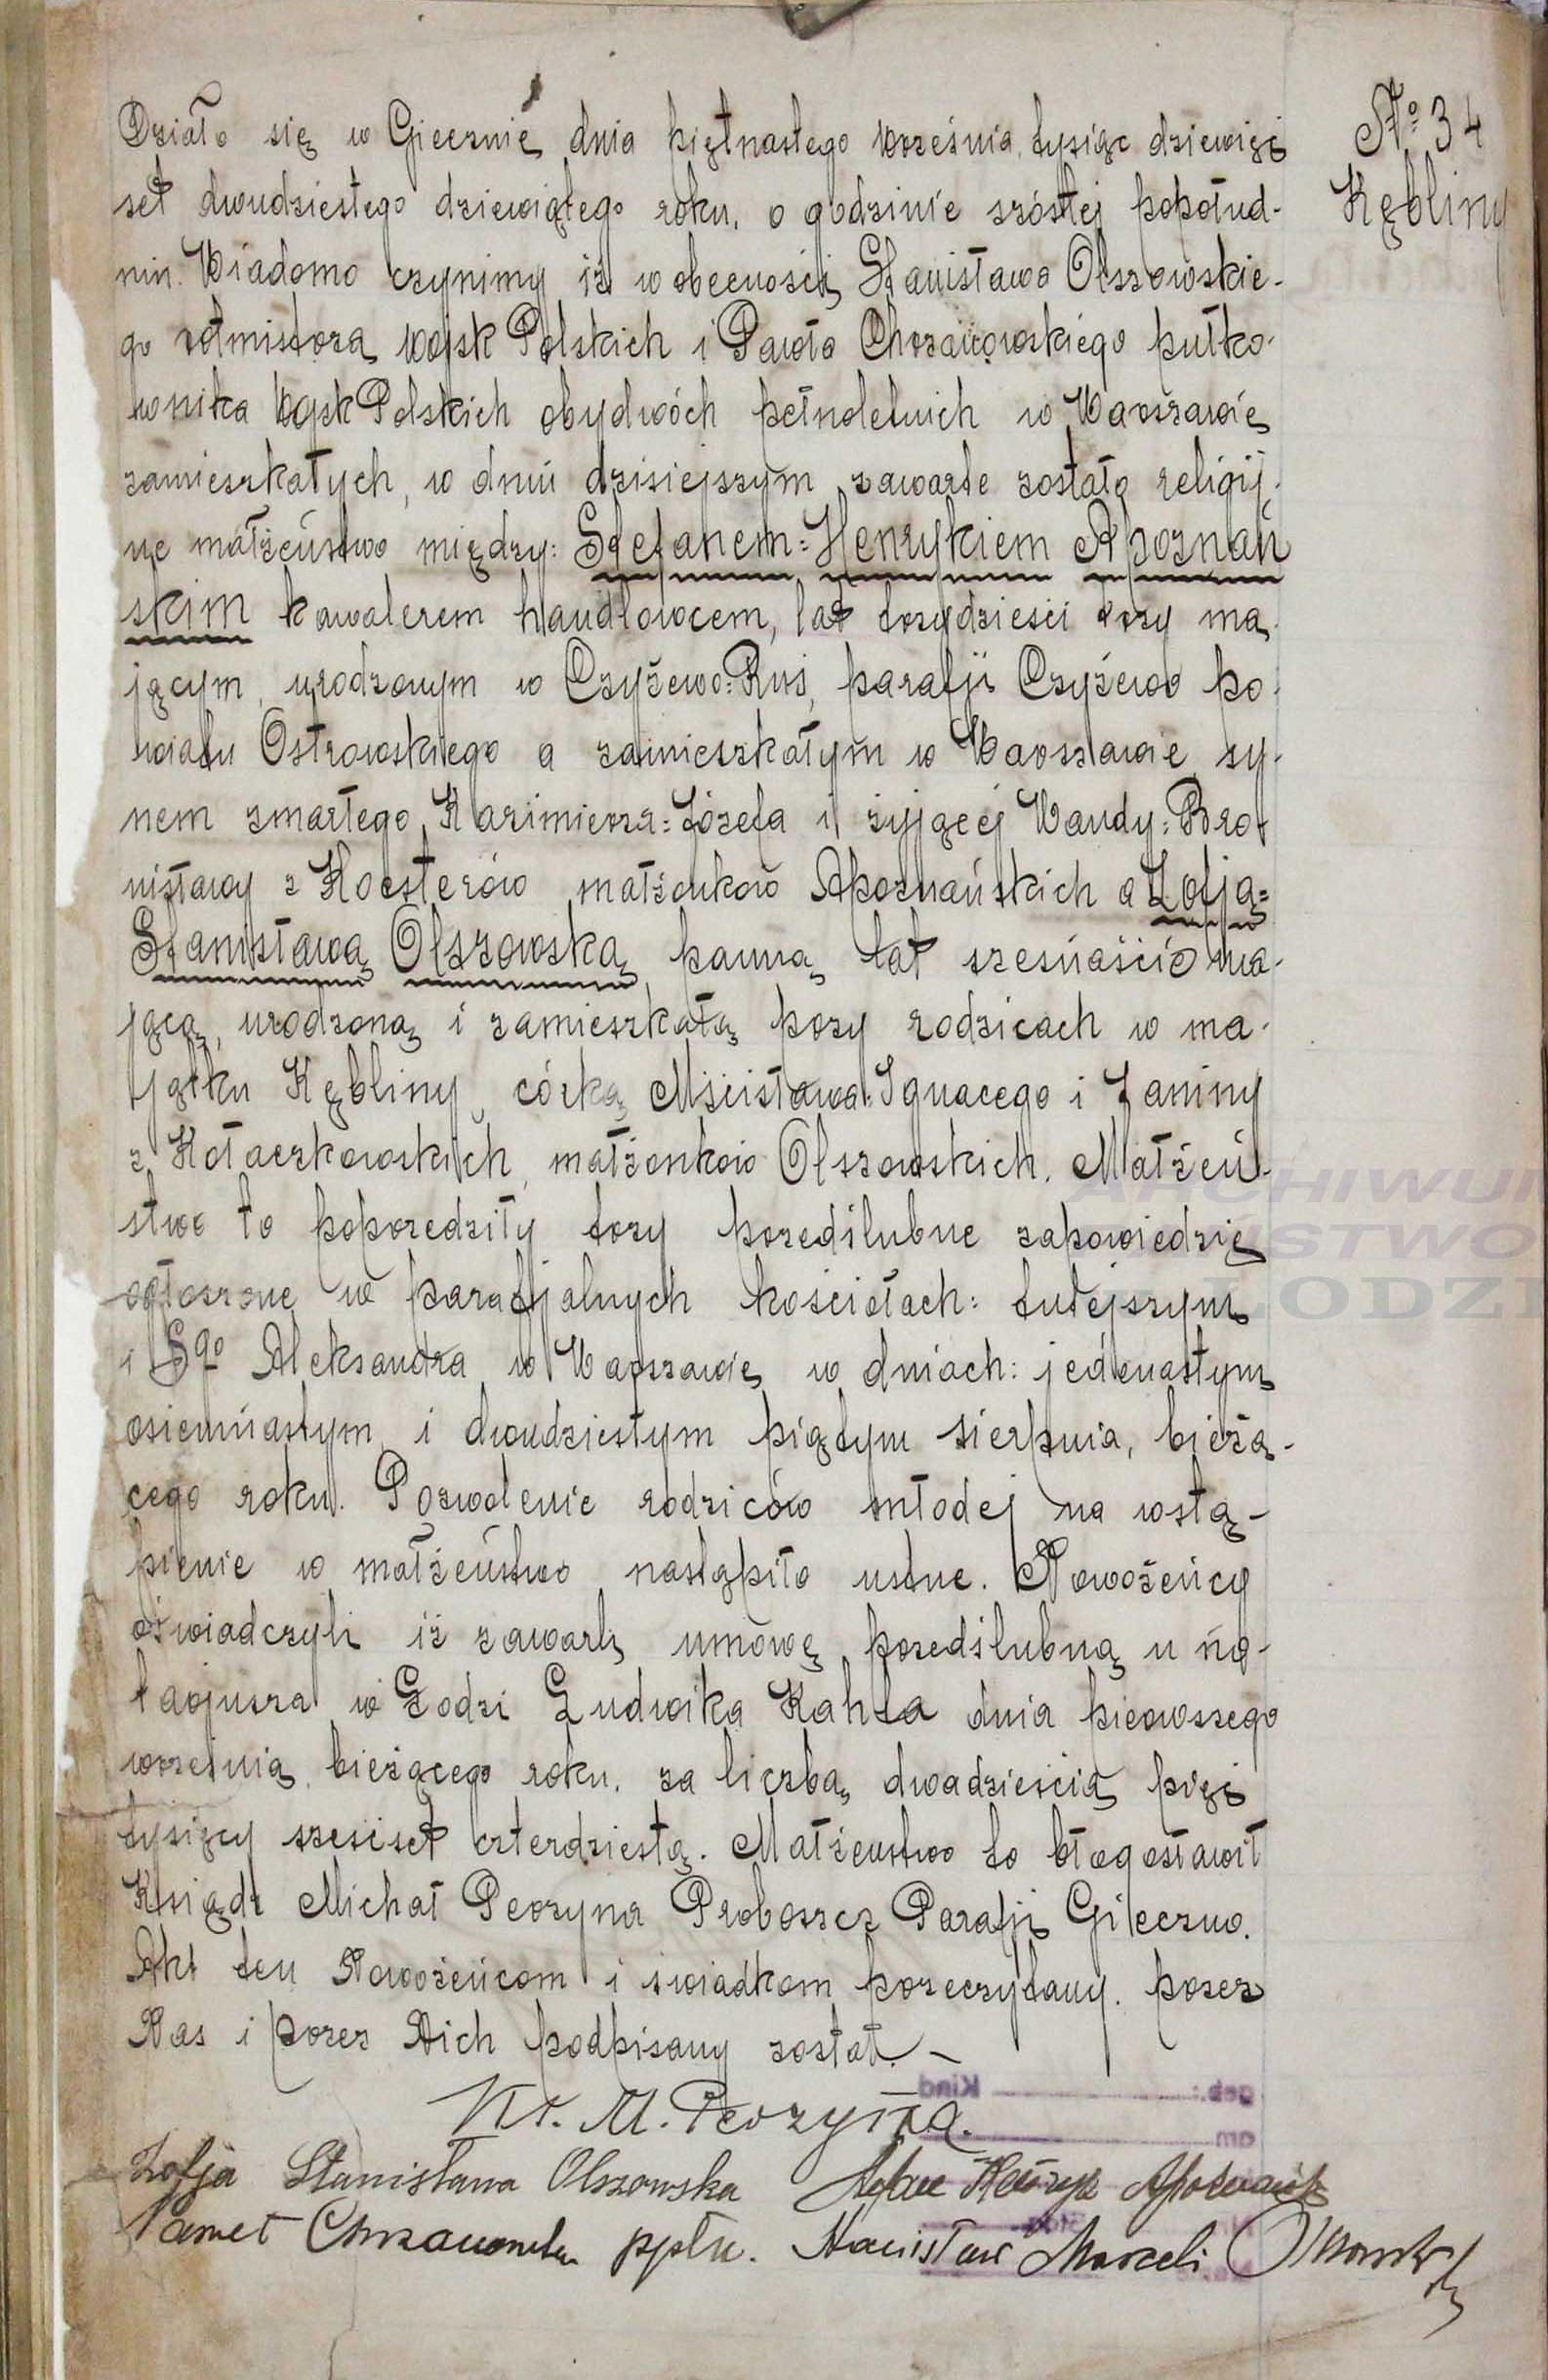 № 34
Kębliny
Działo się w Gieeznie dnia piętnastego września tysiąc dziewięć
set dwudziestego dziewiątego roku, o godzinie szóstej popołud-
niu. Wiadomo czynimy iż w obecności Stanisława Olszowskie-
go rotmistrza Wojsk Polskich i Pawła Chrzanowskiego pułko-
wnika Wojsk Polskich obydwóch pełnoletnich w Warszawie
zamieszkałych, w dniu dzisiejszym zawarte zostało religij-
ne małżeństwo między: Stefanem=Henrykiem Apoznań
skim kawalerem handlowcem, lat trzydzieści trzy ma
jącym, urodzonym w Czyżewo=Ruś, parafji Czyżewo po-
wiatu Ostrowskiego a zamieszkałym w Warszawie sy-
nem zmarłego Kazimierz=Józefa i żyjącej Wandy=Bro-
nisławy z Koesterów małżonków Apoznańskich a Zofją=
Stanisławą Olszowską panną lat szesnaście ma-
jącą, urodzoną i zamieszkałą przy rodzicach w ma-
jątku Kębliny, córką Mścisława=Ignacego i Janiny
z Kołaczkowskich, małżonków Olszowskich. Małżeń-
stwo to poprzedziły trzy przedślubne zapowiedzie
ogłoszone w parafjalnych kościołach: tutejszym
i Sgo Aleksandra w Warszawie w dniach: jedenastym
osiemnastym i dwudziestym piątym sierpnia, bieżą-
cego roku. Pozwolenie rodziców młodej na wstą-
pienie w małżeństwo nastąpiło ustne. Nowożeńcy
oświadczyli iż zawarli umowę przedślubną u no-
tarjusza w Łodzi Ludwika Kahla dnia pierwszego
września bieżącego roku. za liczbą dwadzieścia pięć
tysięcy sześćset czterdziestą. Małżeństwo to błogosławił
Ksiądz Michał Peorzyna Proboszcz Parafji Gieczno.
Akt ten Nowożeńcom i świadkom przeczytany. przez
Nas i przez Nich podpisany został.-
Ks. M. Peorzyna.
Zofja Stanisława Olszowska Stefan Henryk Apoznański
Paweł Chrzanowski ppłk. Stanisław Marceli Olszowski
ARCHIWUM
PAŃSTWO
ŁODZI
geb.: Kind
am